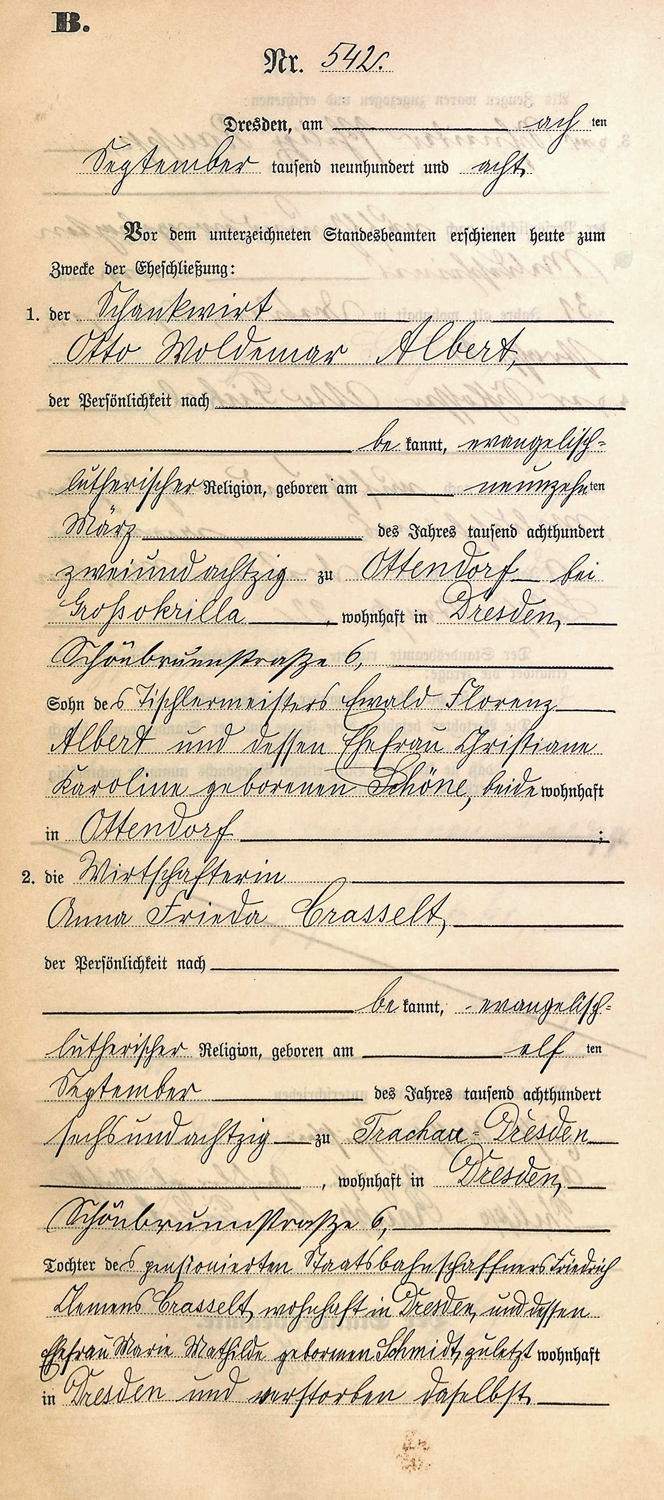 B.
Nr. 542.
Dresden, am ach ten
September tausend neunhundert und acht.
Vor dem unterzeichneten Standesbeamten erschienen heute zum
Zwecke der Eheschließung:
1. der Schankwirt
Otto Woldemar Albert,
der Persönlichkeit nach
be kannt, evangelisch-
lutherischer Religion, geboren am neunzehn ten
März des Jahres tausend achthundert
zweiundachtzig zu Ottendorf bei
Großokrilla, wohnhaft in Dresden,
Schönbrunnstraße 6,
Sohn des Tischlermeisters Ewald Florenz
Albert und dessen Ehefrau Christiane
Karoline geborenen Schöne, beide wohnhaft
in Ottendorf ;
2. die Wirtschafterin
Anna Frieda Crasselt,
der Persönlichkeit nach
be kannt, evangelisch-
lutherischer Religion, geboren am elf ten
September des Jahres tausend achthundert
sechsundachtzig zu Trachau-Dresden
, wohnhaft in Dresden,
Schönbrunnstraße 6,
Tochter des pensionierten Staatsbahnschaffners Friedrich
Clemens Crasselt, wohnhaft in Dresden, und dessen
Ehefrau Marie Mathilde geborenen Schmidt, zuletzt wohnhaft
in Dresden und verstorben daselbst.